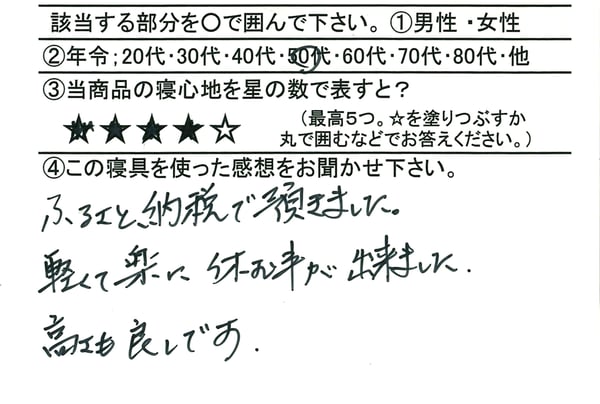 該当する部分を〇で囲んで下さい。①男性・女性
②年令;20代・30代・40代・50代・60代・70代・80代・他
③当商品の寝心地を星の数で表すと？
★★★★☆
（最高５つ。☆を塗りつぶすか
丸で囲むなどでお答えください。）
④この寝具を使った感想をお聞かせ下さい。
ふるさと納税で頂きました。
軽くて楽に休む事が出来ました.
高さも良しです.